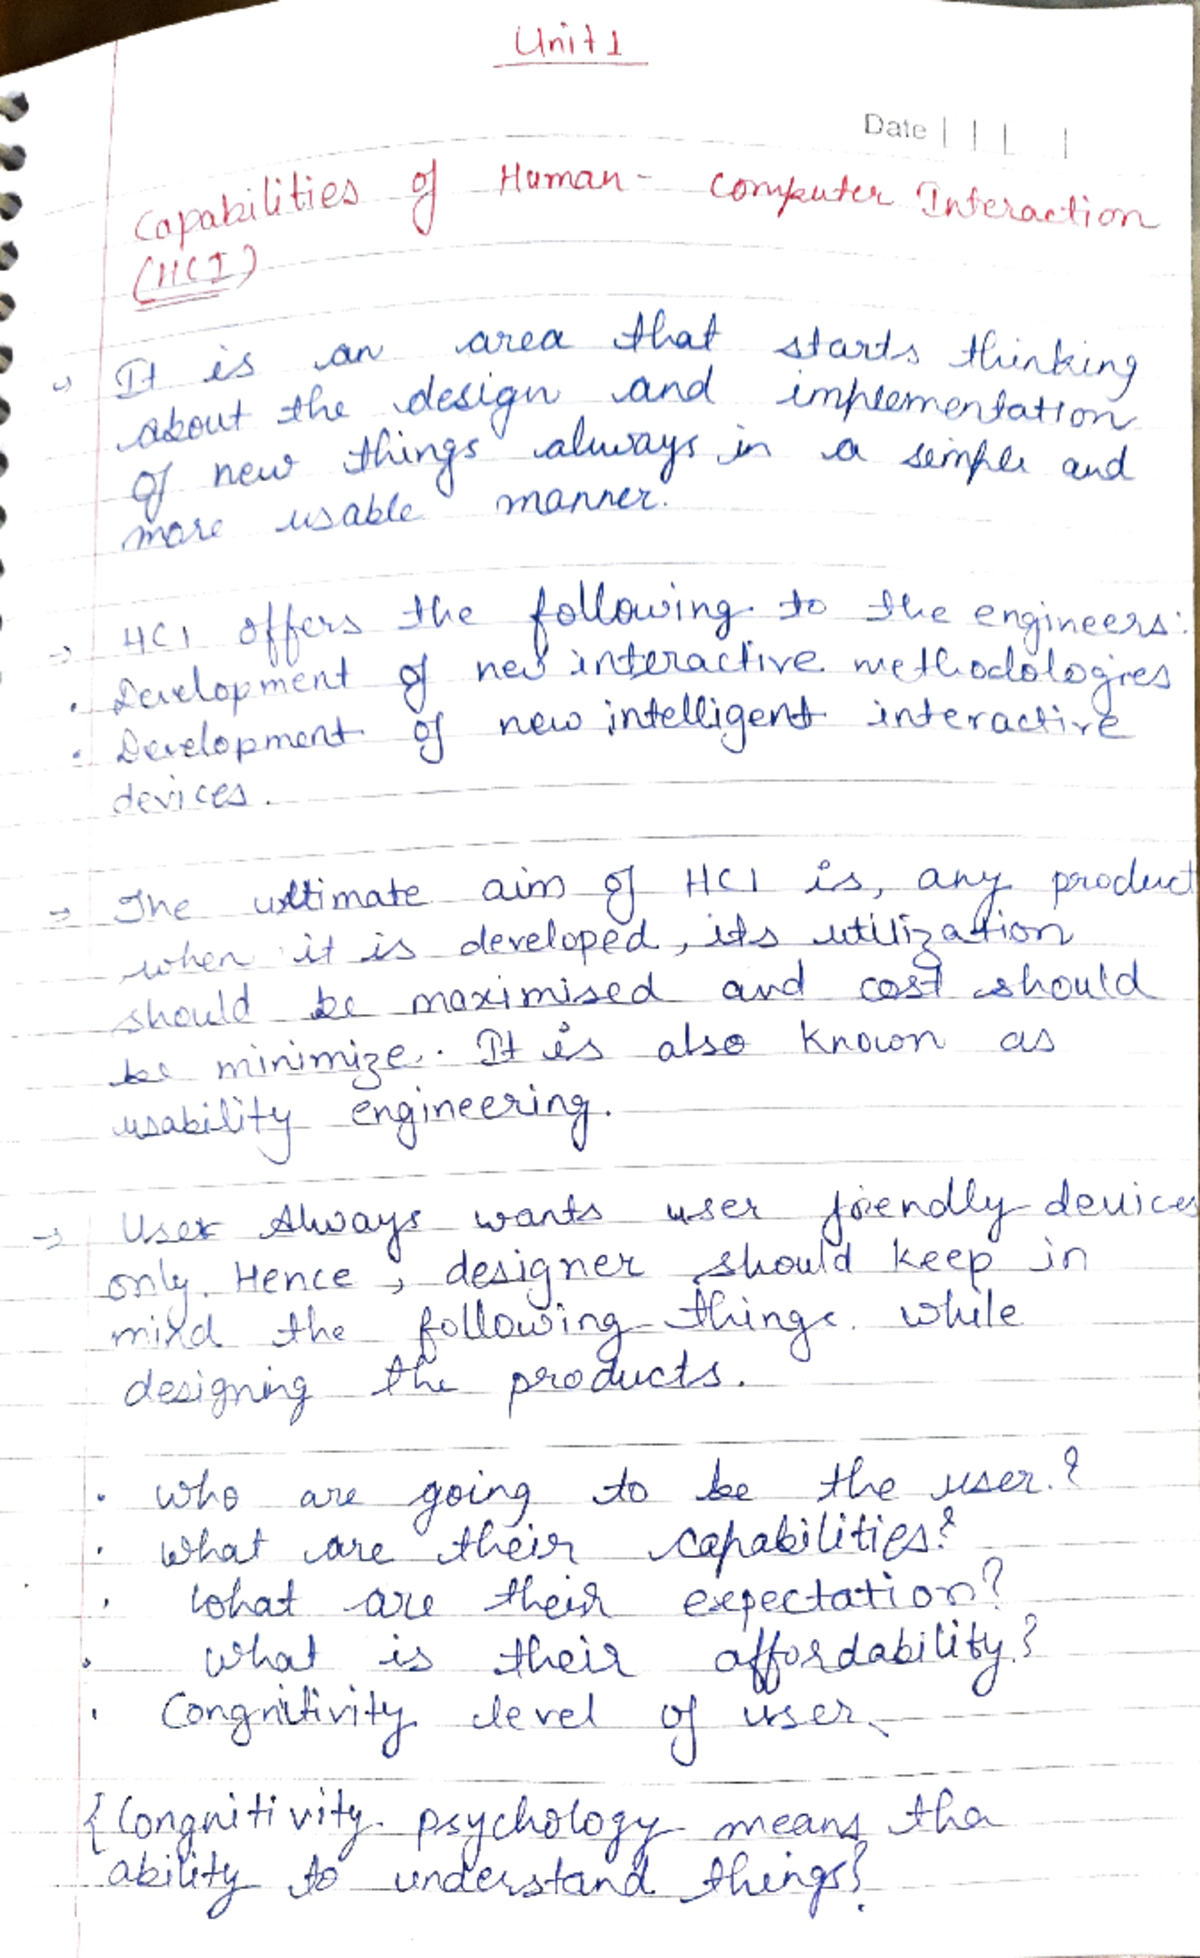 Unit 1
Date
Capabilities of Human - Computer Interaction
(HCI)
→ It is an area that starts thinking
about the design and implementation
of new things always in a simple and
more usable manner.
→ HCI offers the following to the engineers:
• Development of new interactive methodologies
• Development of new intelligent interactive
devices.
→ The ultimate aim of HCI is, any product
when it is developed, its utilization
should be maximised and cost should
be minimize. It is also known as
usability engineering.
→ User Always wants user friendly devices
only. Hence, designer should keep in
mind the following things while
designing the products.
• Who are going to be the user.?
• What are their capabilities?
• What are their expectation?
• What is their affordability?
• Congnitivity level of user.
{Congnitivity psychology means tha
ability to understand things}.